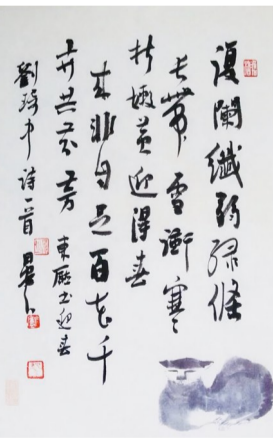 覆闌纖弱綠條
長帶雪衝寒
折嫩黃迎得春
來非自足百花千
卉共芬芳 東廳迎春
劉琦中詩一首